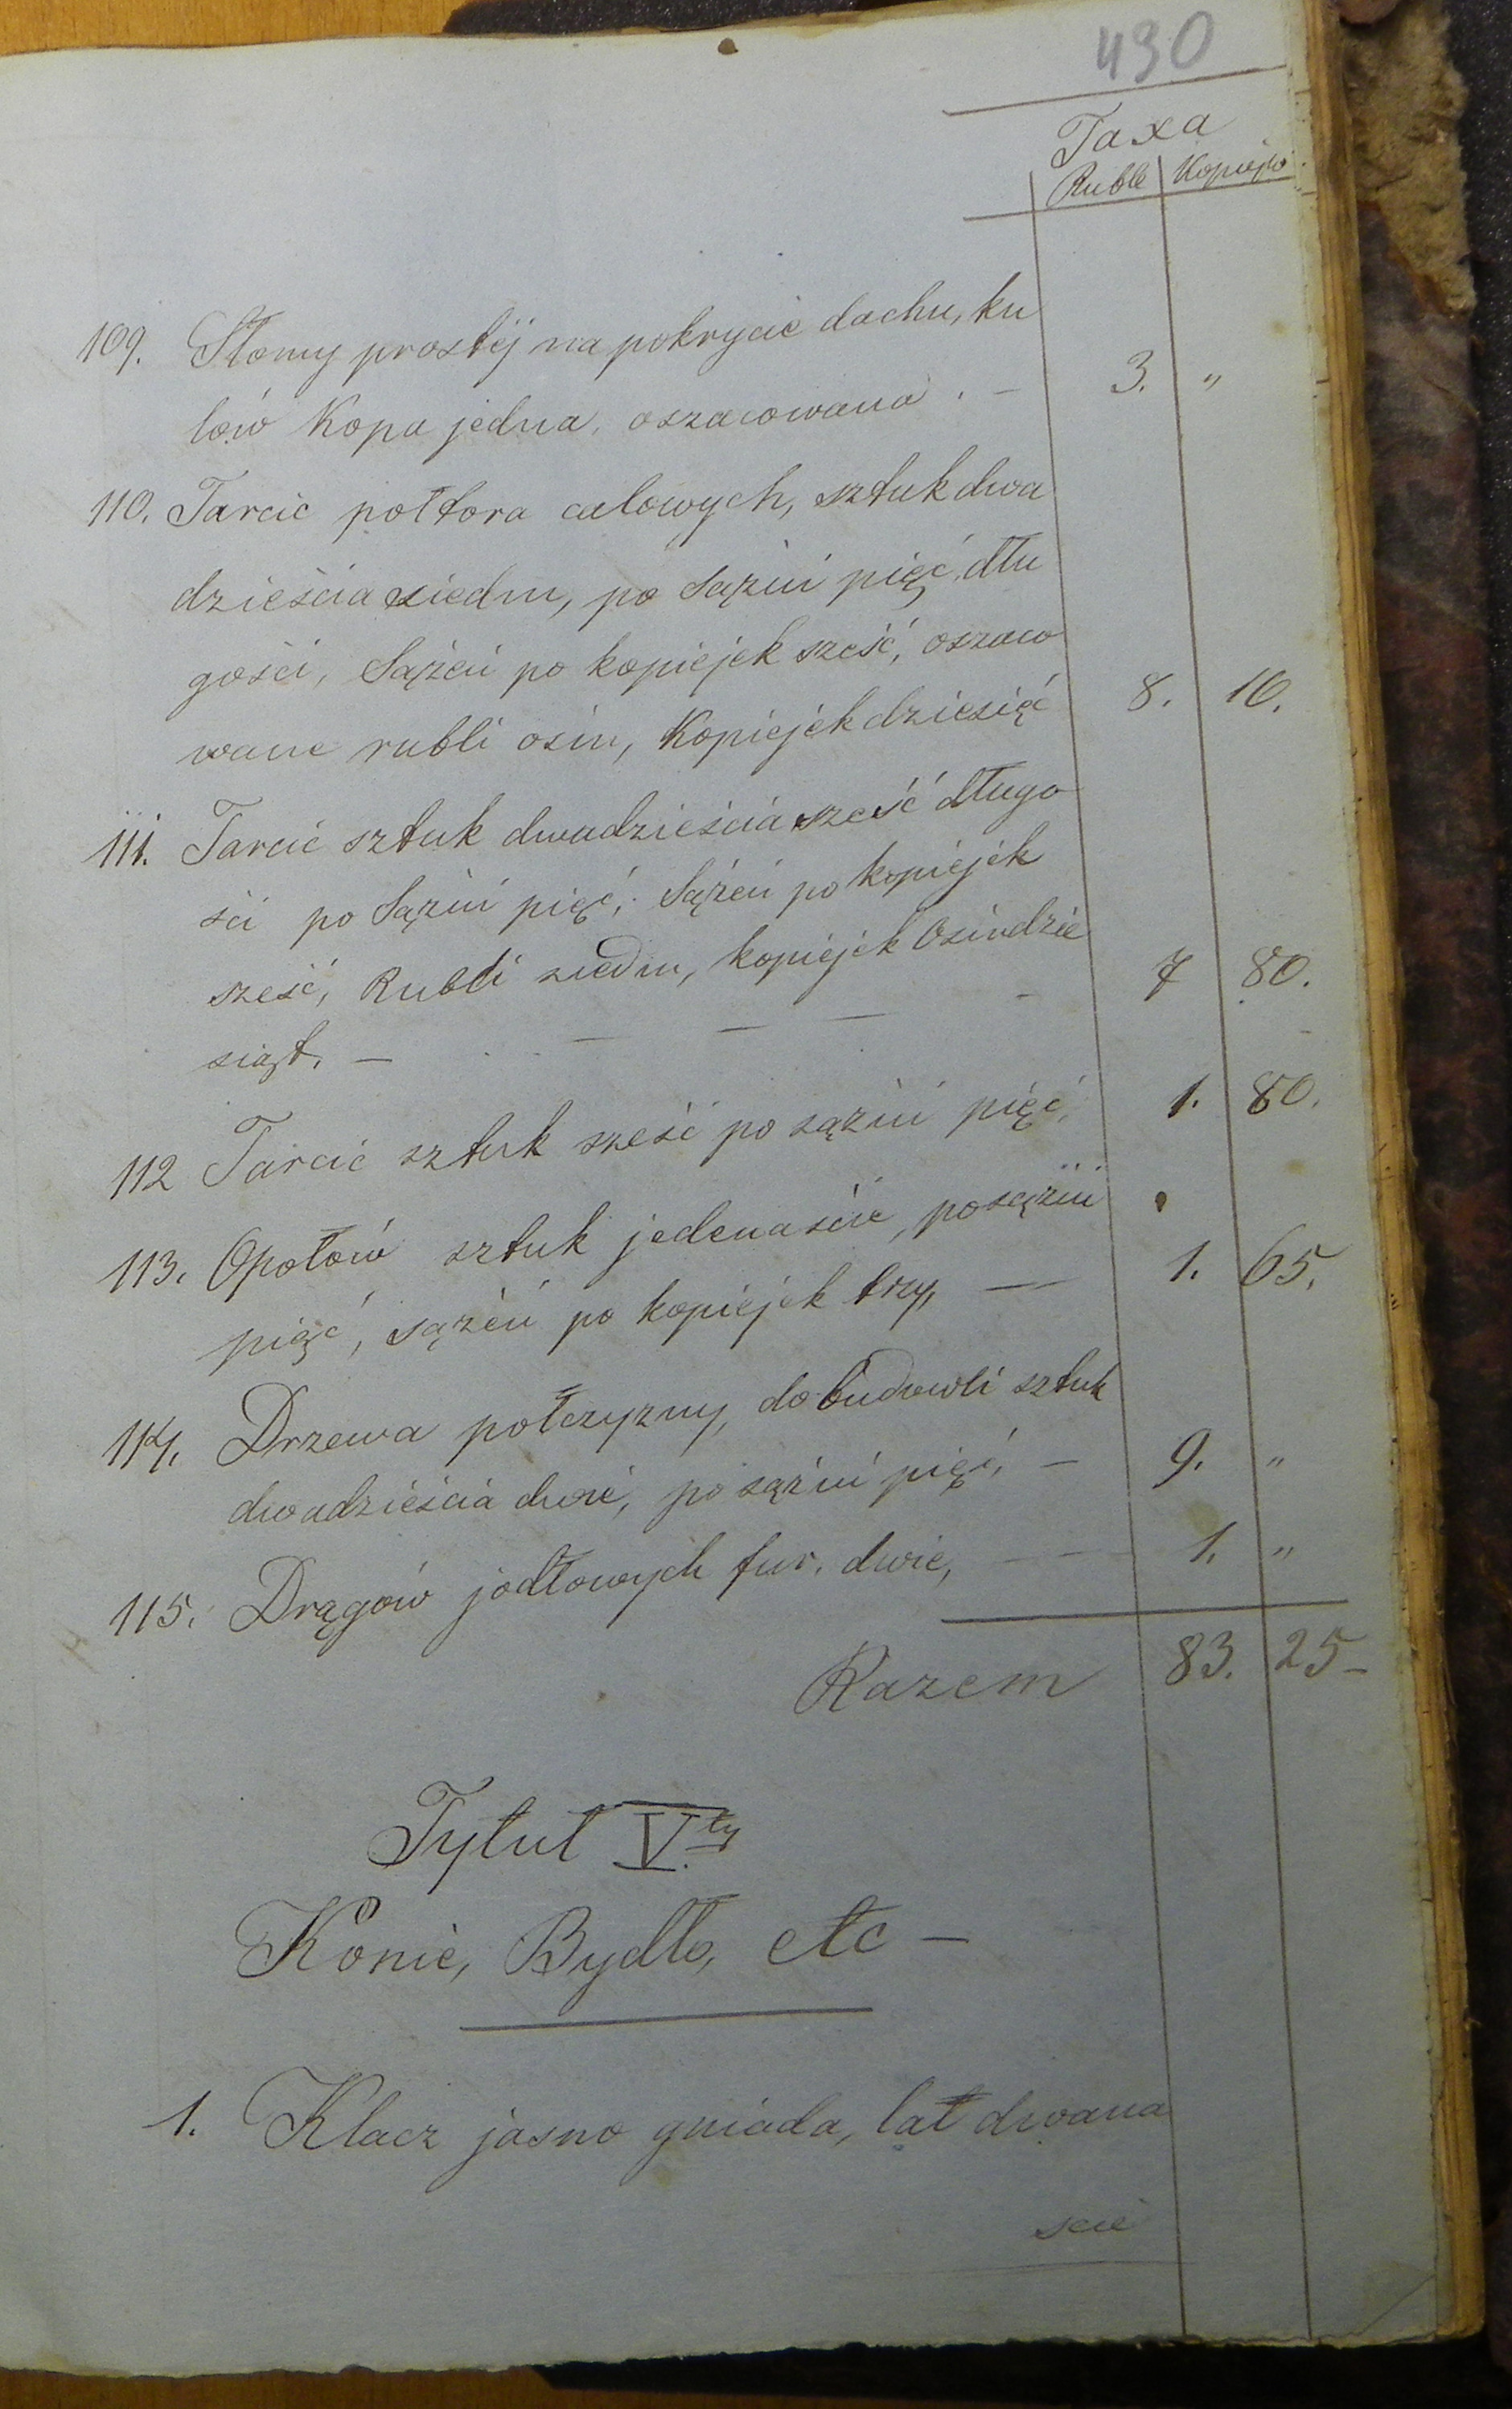 490
Taxa
Ruble Kopiejki
109. Słomy prostéj na pokrycie dachu, ku
lów Kopa jedna, oszacowana . — 3. "
110. Tarcic półtora calowych, sztuk dwa
dzieścia siedm, po Sążni pięć dłu
gości, Sążeń po kopiejek sześć, oszaco
wane rubli ośm, Kopiejek dziesięć 8. 10.
111. Tarcic sztuk dwadzieścia sześć długo
ści po Sążni pięć, Sążeń po kopiejek
sześć, Rubli siedm, kopiejek Ośmdzie
siąt. — — — - 7 80.
112 Tarcic sztuk sześć po sążni pięć, 1. 80.
113. Opołów sztuk jedenaście, po sążni
pięć, sążeń po kopiejek trzy, — 1. 65.
114. Drzewa połczyzny, do budowli sztuk
dwadzieścia dwie, po sążni pięć, — 9. "
115. Drągów jodłowych fur. dwie, — — 1. "
Razem 83. 25 -
Tytuł V.ty
Konie, Bydło, etc —
1. Klacz jasno gniada, lat dwana
ście